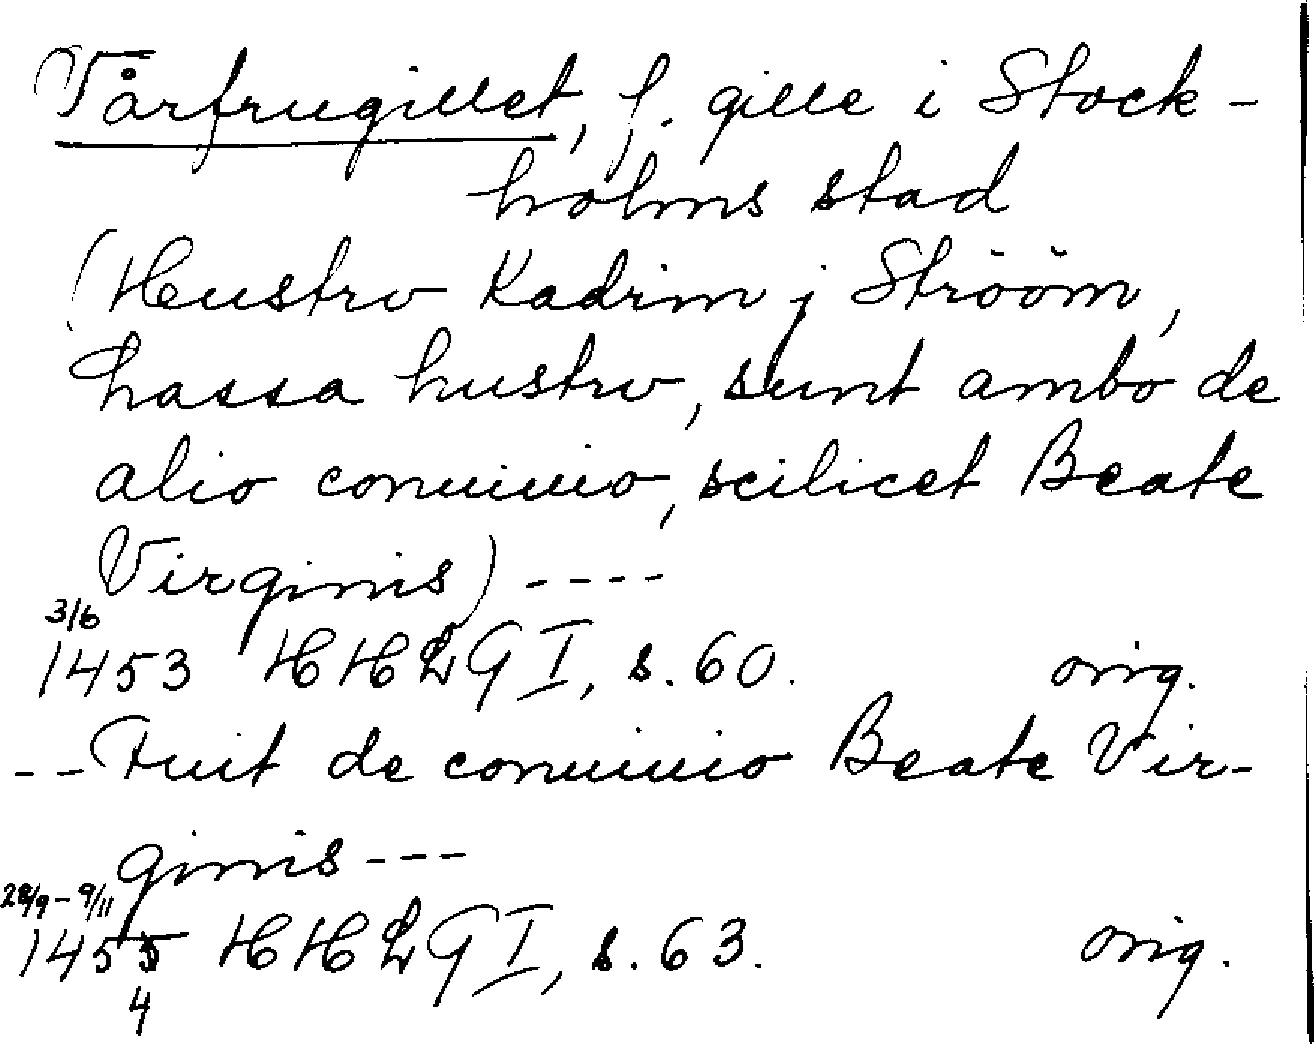 Vårfrugillet, f. gille i Stock-
holms stad
(Hustrv Kadrin j Strööm,
hassa hustrv, sunt ambo de
alio conuiuio, scilicet Beate
Virginis) ----
3/6
1453 HHLGI, s. 60. orig.
-- Fuit de conuiuio Beate Vir-
ginis ---
28/9 - 9/11
1455 HHLGI, s. 63. orig.
4